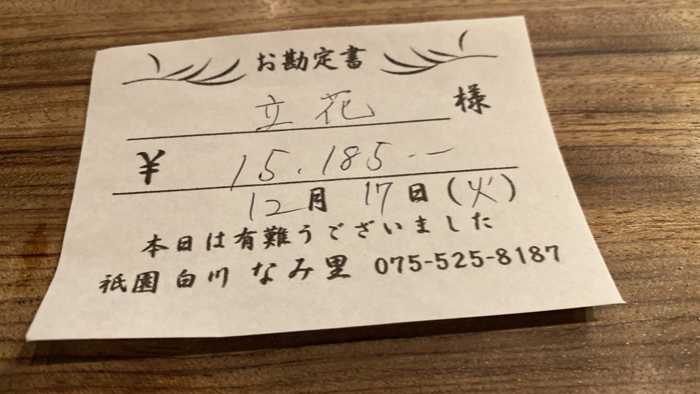 お勘定書
立花 様
¥ 15.185.—
12月 17日(火)
本日は有難うございました
祇園白川 なみ里 075-525-8187